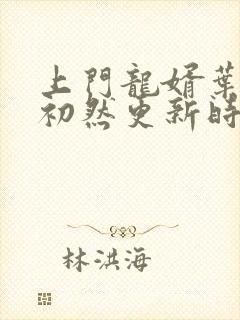 上門龍婿葉
初然更新時
林洪海